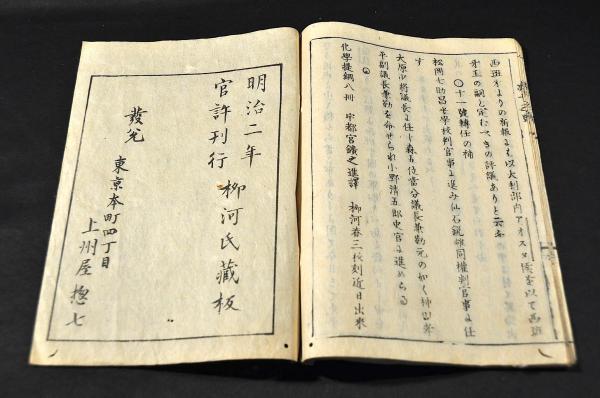 西班牙よりの新報に以太利部内アオスタ侯を以て西班
牙王の嗣と定むべきの評議ありと云
〇十一號轉任の補
松岡七助昌平學校判官事に進み仙石鋭雄同權判官事に任
す
大原少將議長に任し森五位當分議長兼勤元の如く神田孝
平副議長兼勤を命せられ小野清五郎史官に進めらる
化學提綱八冊 宇都宮鑛之進譯 柳河春三校刻近日出來
明治二年
官許刊行 柳河氏藏板
發兌 東京本町四丁目
上州屋惣七